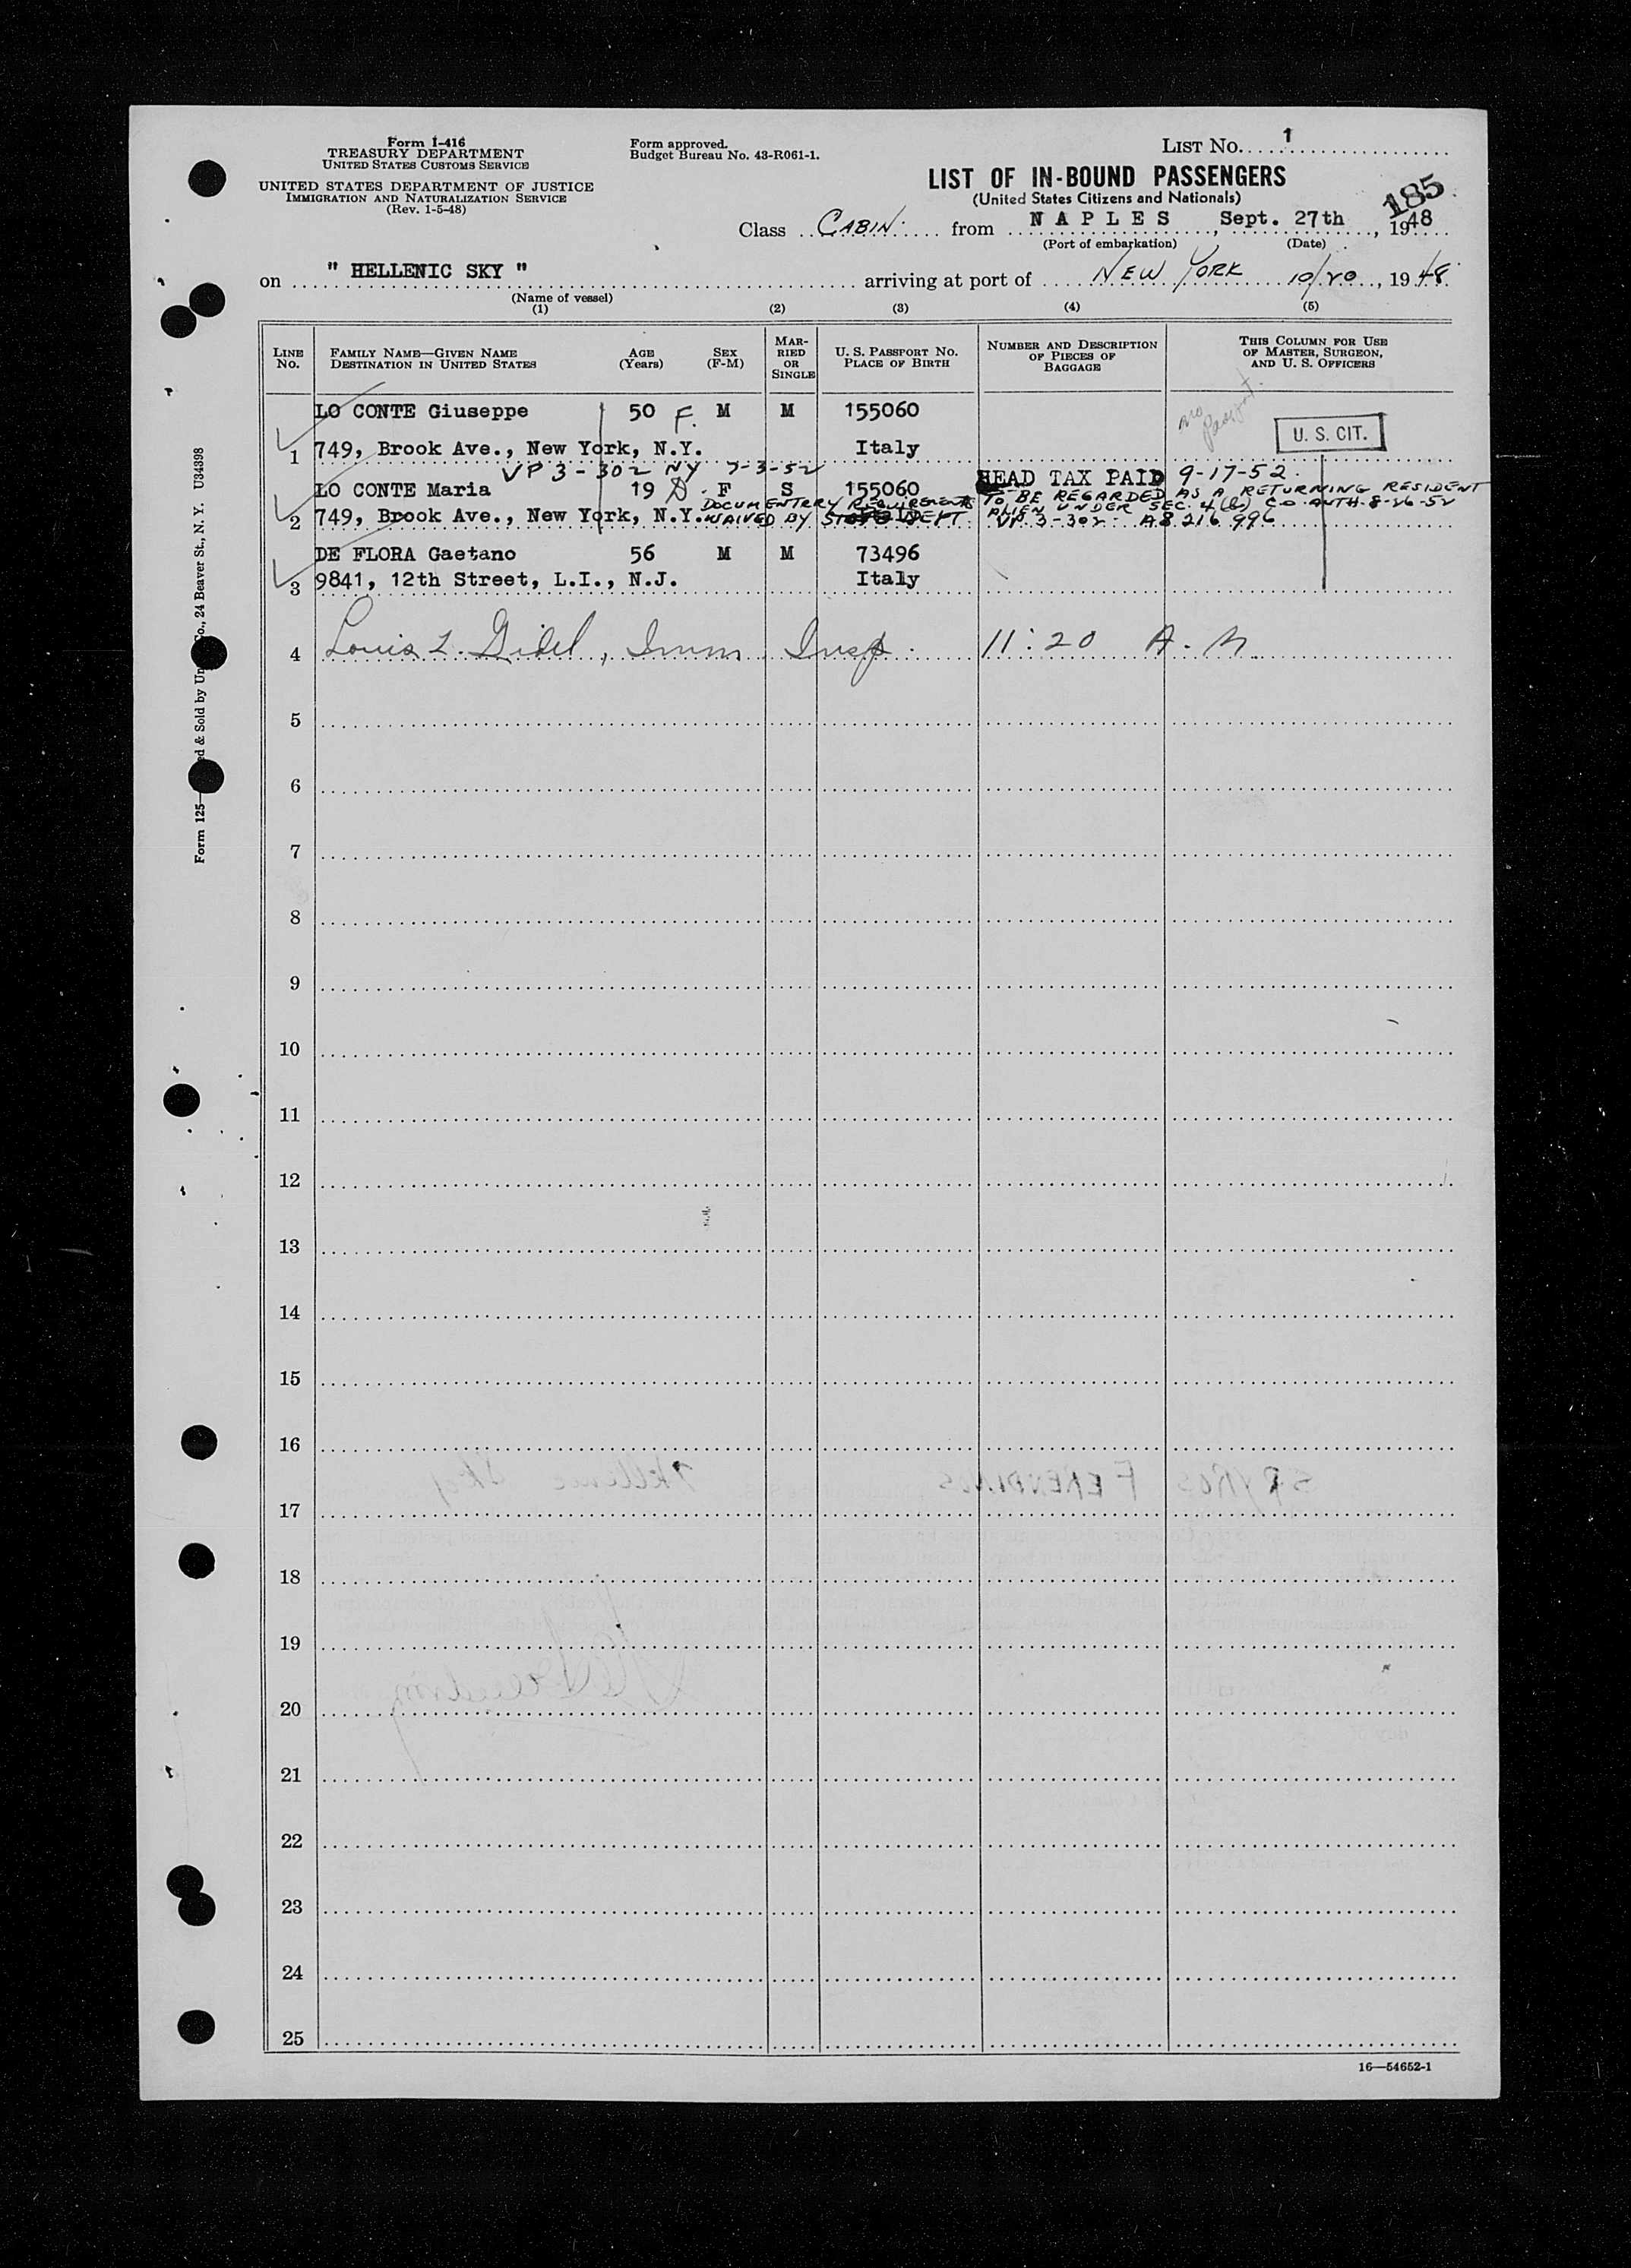 Form I-416
TREASURY DEPARTMENT
UNITED STATES CUSTOMS SERVICE
UNITED STATES DEPARTMENT OF JUSTICE
IMMIGRATION AND NATURALIZATION SERVICE
(Rev. 1-5-48)
Form approved.
Budget Bureau No. 43-R061-1.
LIST No. 1
LIST OF IN-BOUND PASSENGERS
(United States Citizens and Nationals)
185
Class CABIN from NAPLES, Sept. 27th, 1948
(Port of embarkation) (Date)
on " HELLENIC SKY " arriving at port of NEW YORK 10/20, 1948
(Name of vessel)
(1) (2) (3) (4) (5)
LINE No. FAMILY NAME—GIVEN NAME DESTINATION IN UNITED STATES AGE (Years) SEX (F-M) MARRIED OR SINGLE U. S. PASSPORT No. PLACE OF BIRTH NUMBER AND DESCRIPTION OF PIECES OF BAGGAGE THIS COLUMN FOR USE OF MASTER, SURGEON, AND U. S. OFFICERS
LO CONTE Giuseppe 50 F. M M 155060 no Passport.
U. S. CIT.
1 749, Brook Ave., New York, N.Y. Italy
VP 3-302 NY 7-3-52 HEAD TAX PAID 9-17-52.
LO CONTE Maria 19 D. F S 155060 TO BE REGARDED AS A RETURNING RESIDENT
DOCUMENTARY REQUIREMENTS ALIEN UNDER SEC. 4(b) CO AUTH 8-26-52
2 749, Brook Ave., New York, N.Y. WAIVED BY STATE DEPT VP 3-302- A8 216 996
DE FLORA Gaetano 56 M M 73496
3 9841, 12th Street, L.I., N.J. Italy
4 Louis L. Gidel, Imm Insp. 11:20 A.M.
5
6
7
8
9
10
11
12
13
14
15
16
17
18
19
20
21
22
23
24
25
16—54652-1
Form 125—ed & Sold by Un Co., 24 Beaver St., N. Y. U34398